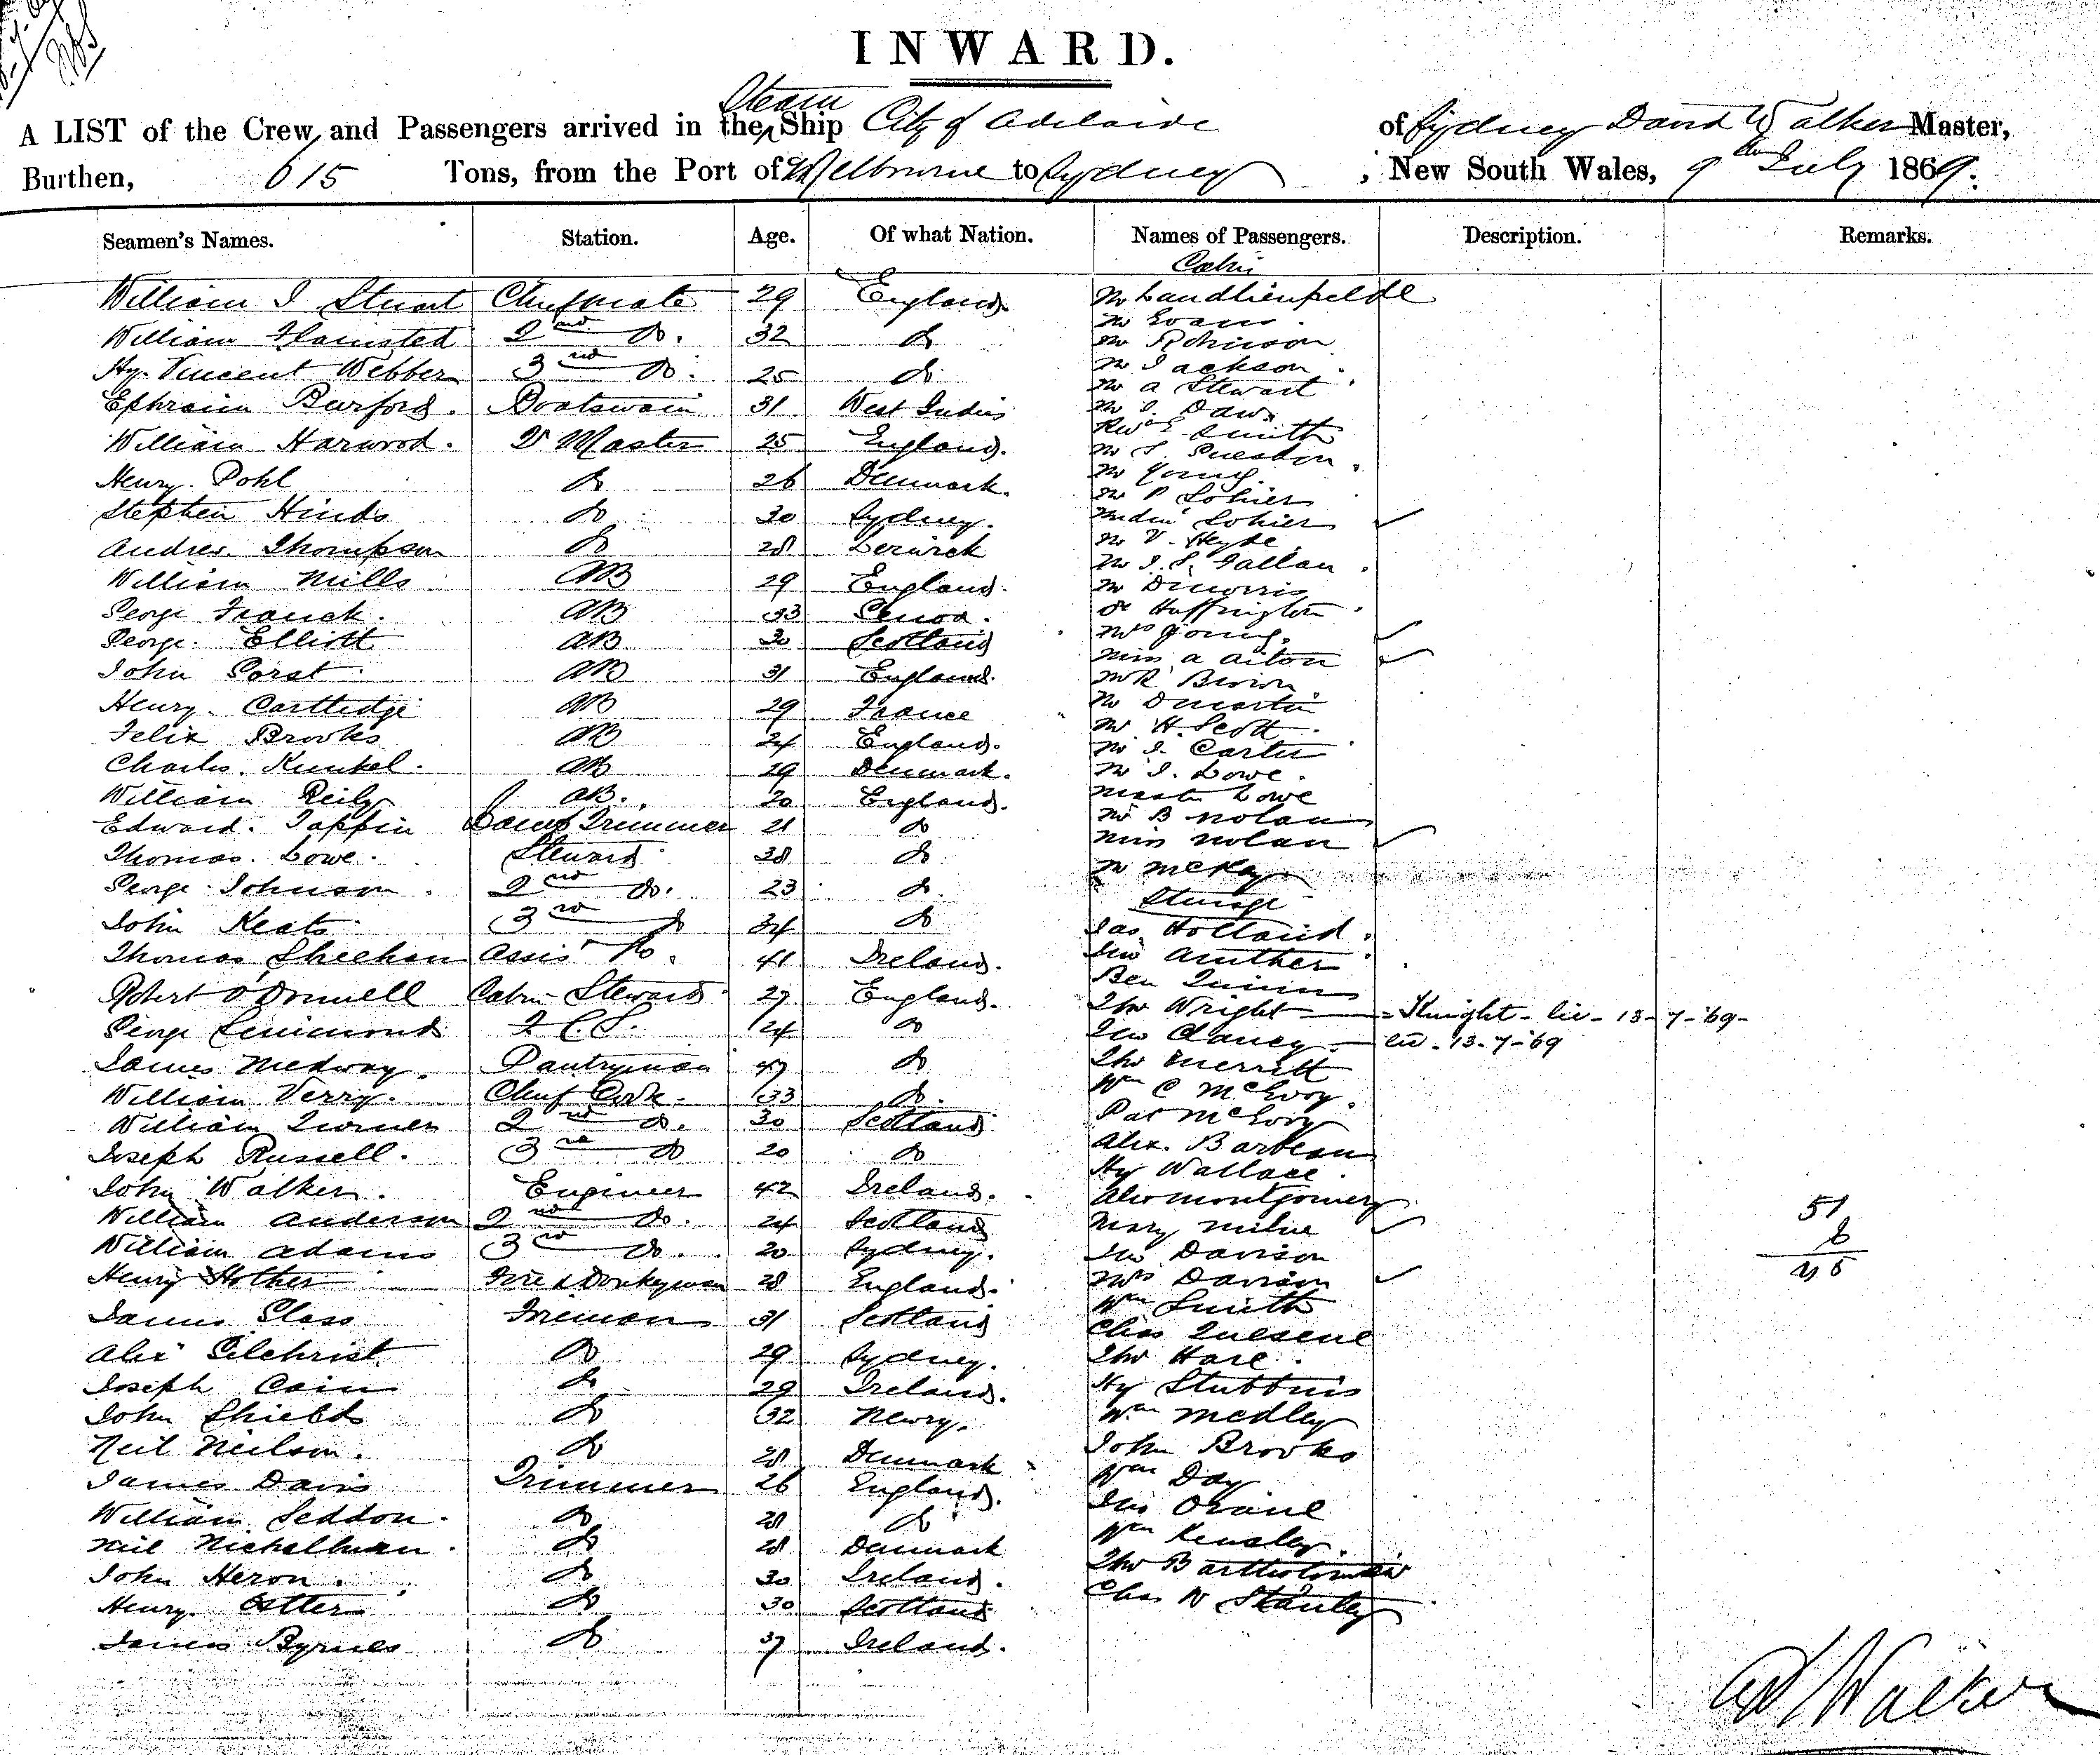 INWARD.
Steam
A LIST of the Crew, and Passengers arrived in the Ship City of Adelaide of Sydney David Walker Master,
Burthen, 615 Tons, from the Port of Melbourne to Sydney, New South Wales, 9th July 1869.
Seamen's Names. Station. Age. Of what Nation. Names of Passengers. Description. Remarks.
Cabin
William J Stuart Chief mate 29 England Mr
William 2nd Do. 32 Do Mr Evans
Mr Robinson
Hy. Vincent Webber 3rd Do. 25 Do Mr Jackson
Mr A Stewart
Ephraim Burford. Boatswain 31 West Indies Mr J. Daw
Smith
William Harwood. Qr Master 25 England. Mr
Mr Young
Henry Pohl Do 26 Denmark. Mr P Lohier
Stephen Hinds Do 30 Sydney. Lohier
Mr V. Heyde
Andrew Thompson Do 28 Mr J. S. Fallon
William Mills AB 29 England. Mr
George Franck. AB 33 Genoa. Dr Huffington
George Elliott AB 30 Scotland Mrs Young.
Miss A Aiton
John AB 31 England. Mr R
Henry Carttledge AB 29 France Mr D Martin
Mr H. Scott
Felix Brooks AB 24 England. Mr J. Carter
Charles Kunkel. AB 29 Denmark. Mr J. Lowe.
William Reily AB. 20 England. Master Lowe
Edward Tappin Trimmer 21 Do Mr B Nolan
Miss Nolan
Thomas. Lowe. Steward 38 Do Mr McKay
George Johnson 2nd Do. 23 Do Steerage
John Keats 3rd Do 34 Do Jas Holland.
Thomas Sheehan Assist Do. 41 Ireland. Jno
Ben Quinn
Robert O'Donnell Cabin Steward 27 England. Thos Wright - Knight - lic - 13-7-'69-
George Simmonds F C S. 24 Do Jno Clancy - lic. 13-7-'69
James Medway. Pantryman 47 Do Thos Merritt
William Verry. Chief Cook. 33 Do. Wm C McEvoy.
William Turner 2nd Do. 30 Scotland Pat McEvoy
Joseph Russell. 3rd Do 20 Do Alex.
Hy Wallace.
John Walker. Engineer 42 Ireland. Alex Montgomery
William Anderson 2nd Do. 24 Scotland Mary Milne 51
William Adams 3rd Do. 20 Sydney. Jno Davison 6
Henry Hother Fire & Donkeyman 28 England. Mrs Davison 45
James Glass Fireman 31 Scotland Wm Smith
Chas
Alex Gilchrist Do 29 Sydney. Thos Hare.
Joseph Cain Do 29 Ireland. Hy Stubbins
John Shields Do 32 Newry. Wm Medley
Neil Neilson. Do 28 Denmark John Brooks
James Davis Trimmer 26 England. Wm Day
William Seddon. Do 21 Do Jno
Neil Do 28 Denmark Wm Kensley.
John Heron. Do 30 Ireland. Thos Bartholomew
Henry Do 30 Scotland Chas W Stanley
James Byrnes Do 37 Ireland.
D Walker